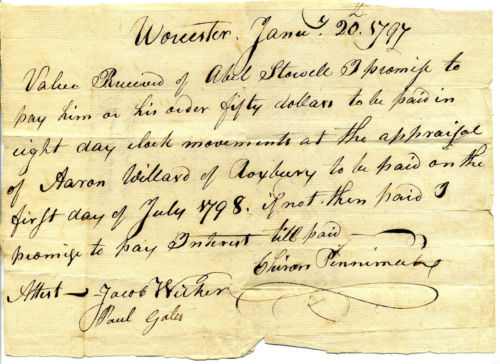 Worcester. Janu.y 20.th 1797
Value Received of Abel Stowell I promise to
pay him or his order fifty dollars to be paid in
eight day clock movements at the appraisal
of Aaron Willard of Roxbury to be paid on the
first day of July 1798. if not then paid I
promise to pay Interest till paid —
Penniman
Attest — Jacob Wicker
Paul Gales